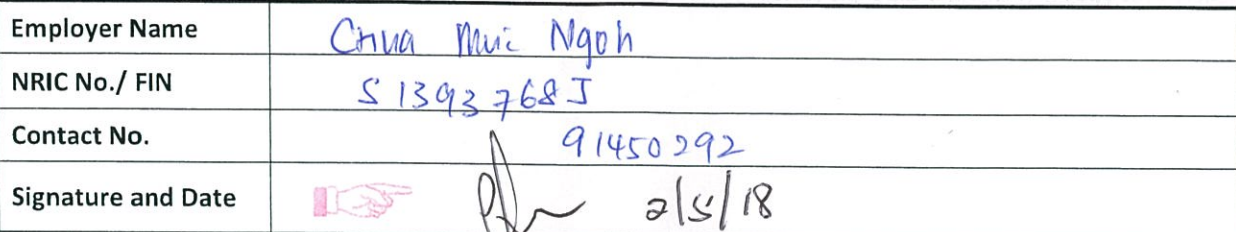 Employer Name Chua Mui Ngoh
NRIC No./ FIN S1393768J
Contact No. 91450292
Signature and Date 2/5/18